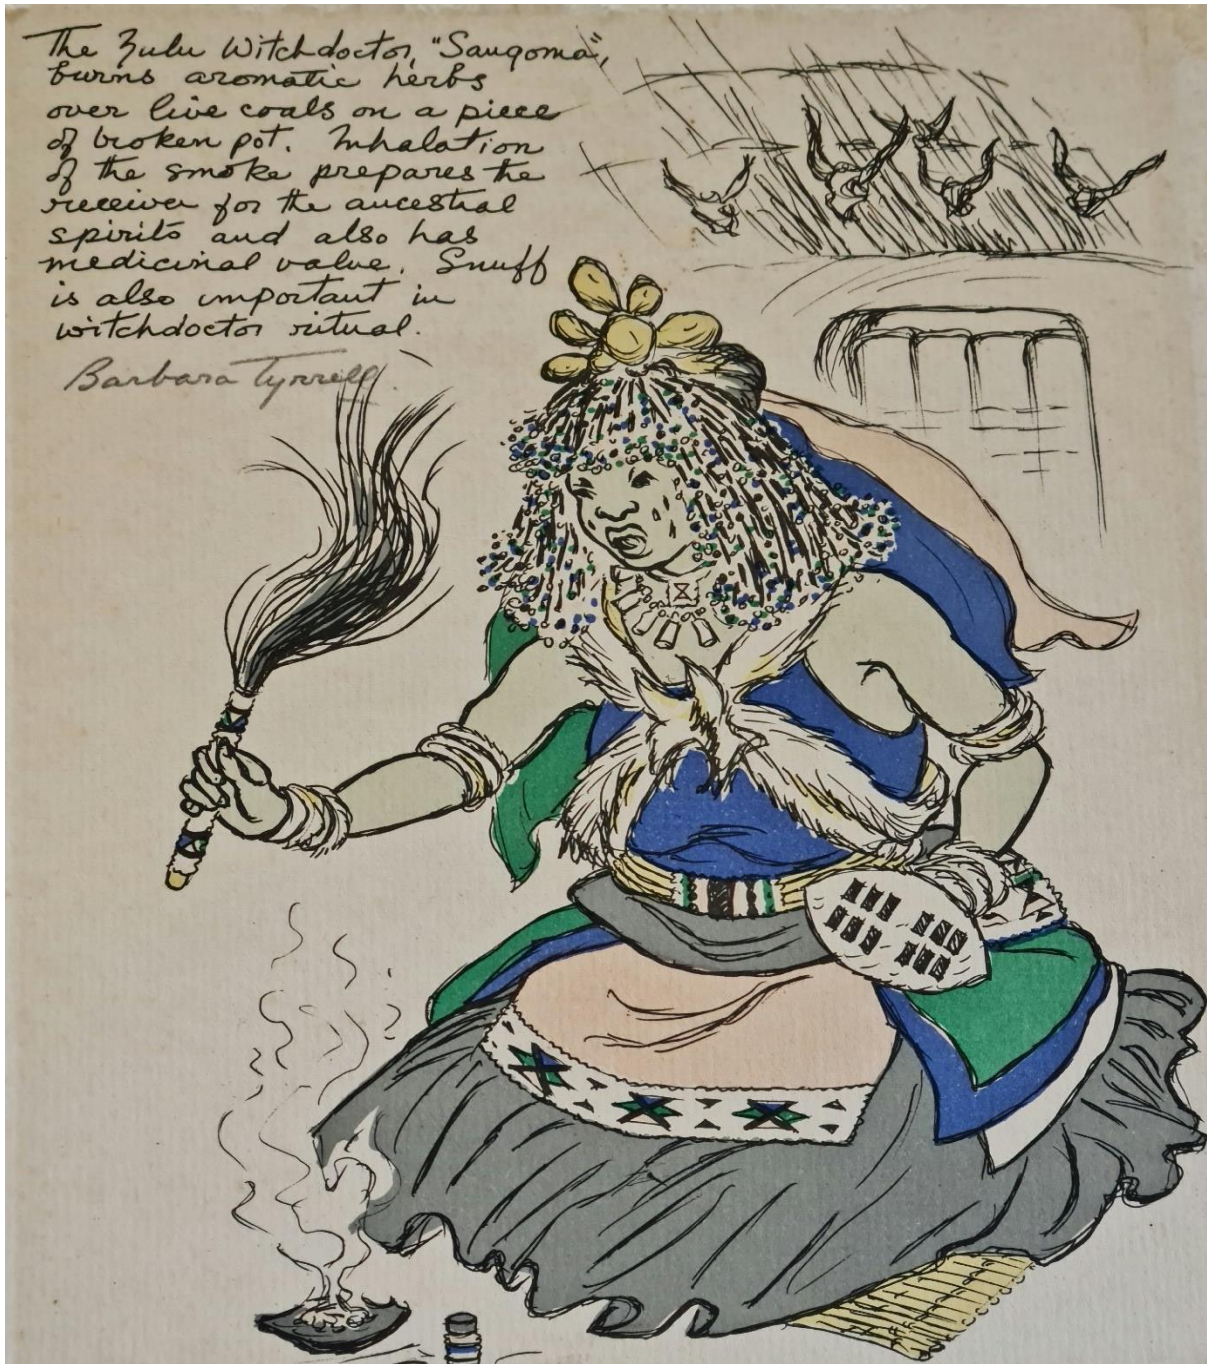 The Zulu Witchdoctor, "Saugoma",
burns aromatic herbs
over live coals on a piece
of broken pot. Inhalation
of the smoke prepares the
receiver for the ancestral
spirits and also has
medicinal value. Snuff
is also important in
witchdoctor ritual.
Barbara Tyrrell.